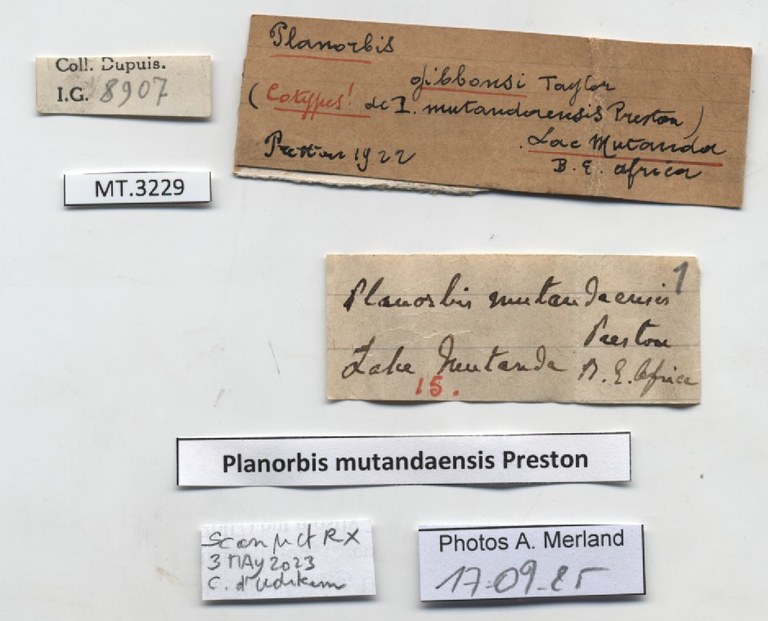 Coll. Dupuis.
I.G. 8907
MT.3229
Planorbis
gibbonsi Taylor
(Cotypes! de I. mutandaensis Preston)
Lac Mutanda
Preston 1922
B. E. africa
1
Planorbis mutandaensis
Preston
Lake Mutanda B. E. Africa
15.
Planorbis mutandaensis Preston
Scan µct RX
3 MAY 2023
C. d'Udekem
Photos A. Merland
17-09-25